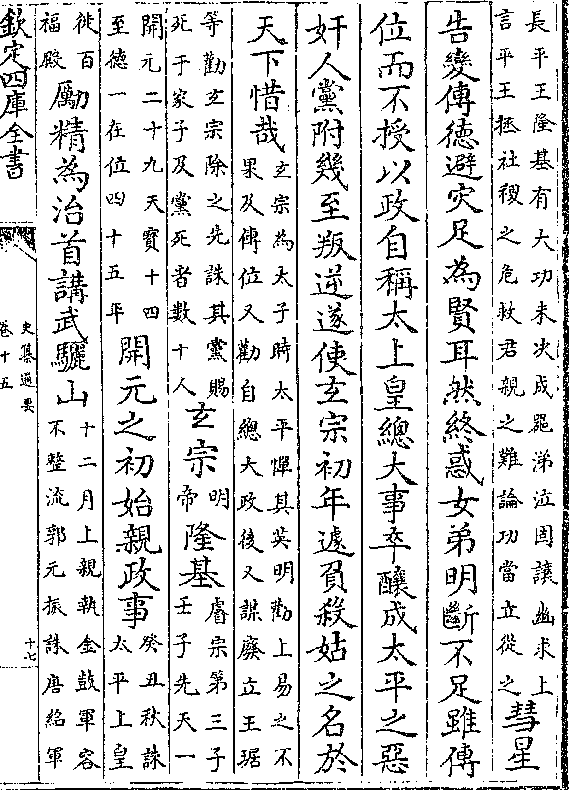 長平王隆基有大功未決成器涕泣固讓幽求上
言平王拯社稷之危救君親之難論功當立從之
彗星
告變傳德避灾足為賢耳然終惑女弟明斷不足雖傳
位而不授以政自稱太上皇總大事卒釀成太平之惡
奸人黨附幾至叛逆遂使玄宗初年遽負殺姑之名於
天下惜哉
玄宗為太子時太平憚其英明勸上易之不
果及傳位又勸自總大政後又謀廢立王琚
等勸玄宗除之先誅其黨賜
死于家子及黨死者數十人
玄宗
明
帝
隆基
睿宗第三子
壬子先天一
開元二十九天寶十四
至德一在位四十五年
開元之初始親政事
癸丑秋誅
太平上皇
徙百
福殿
勵精為治首講武驪山
十二月上親執金鼓軍容
不整流郭元振誅唐紹軍
欽定四庫全書
史纂通要
卷十五
十七